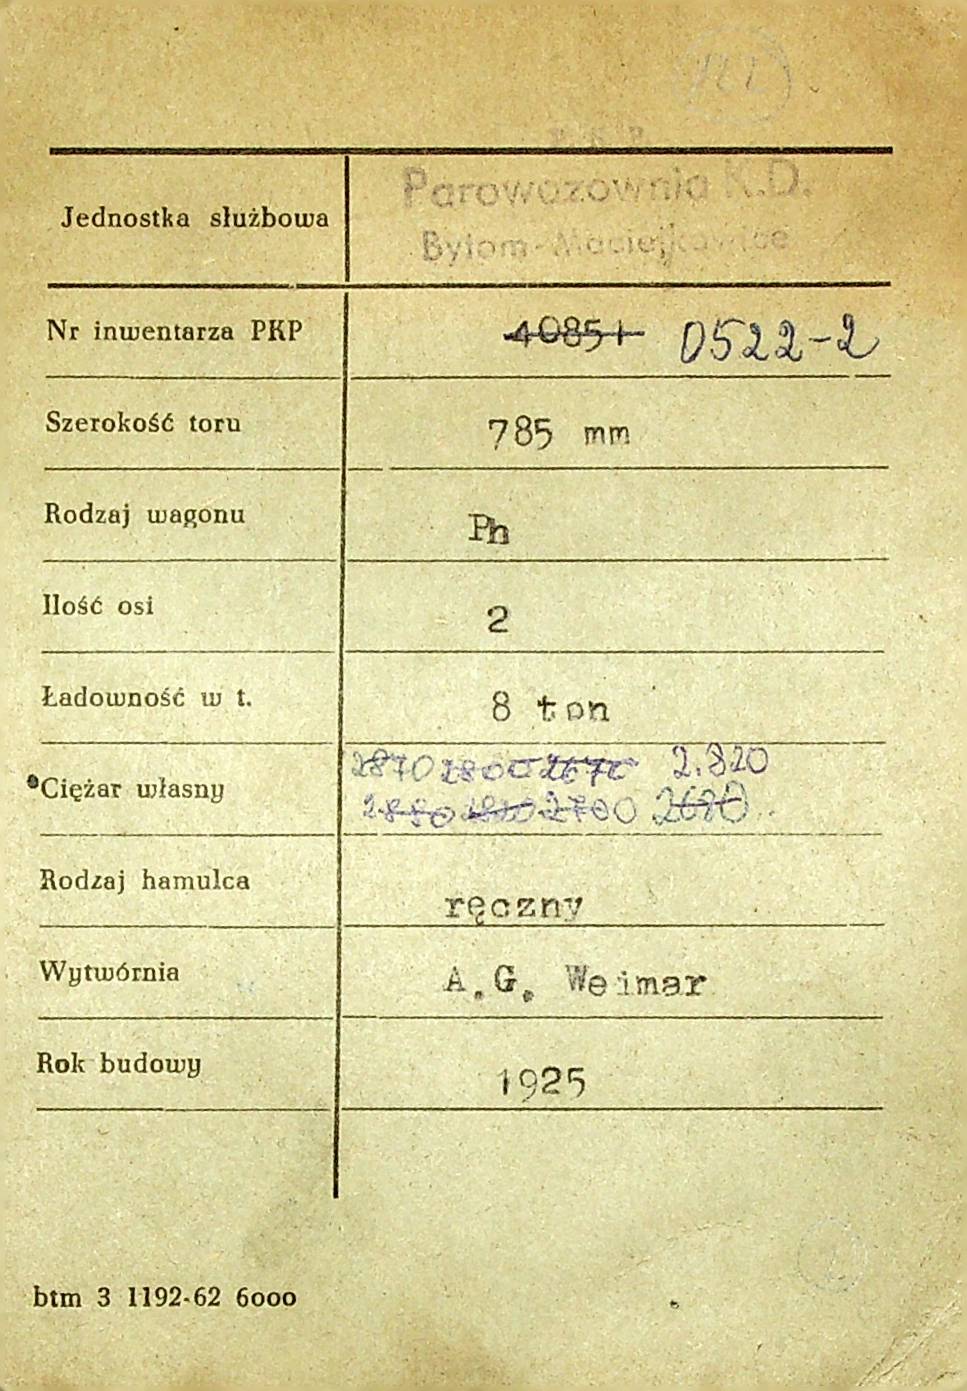 P.K.P.
Parowozownia K.D.
Bytom-Maciejkowice
Jednostka służbowa
Nr inwentarza PKP 40851 0522-2
Szerokość toru 785 mm
Rodzaj wagonu Ph
Ilość osi 2
Ładowność w t. 8 ton
2870 2800 2670 2.820
Ciężar własny
2880 2700 2680
Rodzaj hamulca ręczny
Wytwórnia A.G. Weimar
Rok budowy 1925
btm 3 1192-62 6000